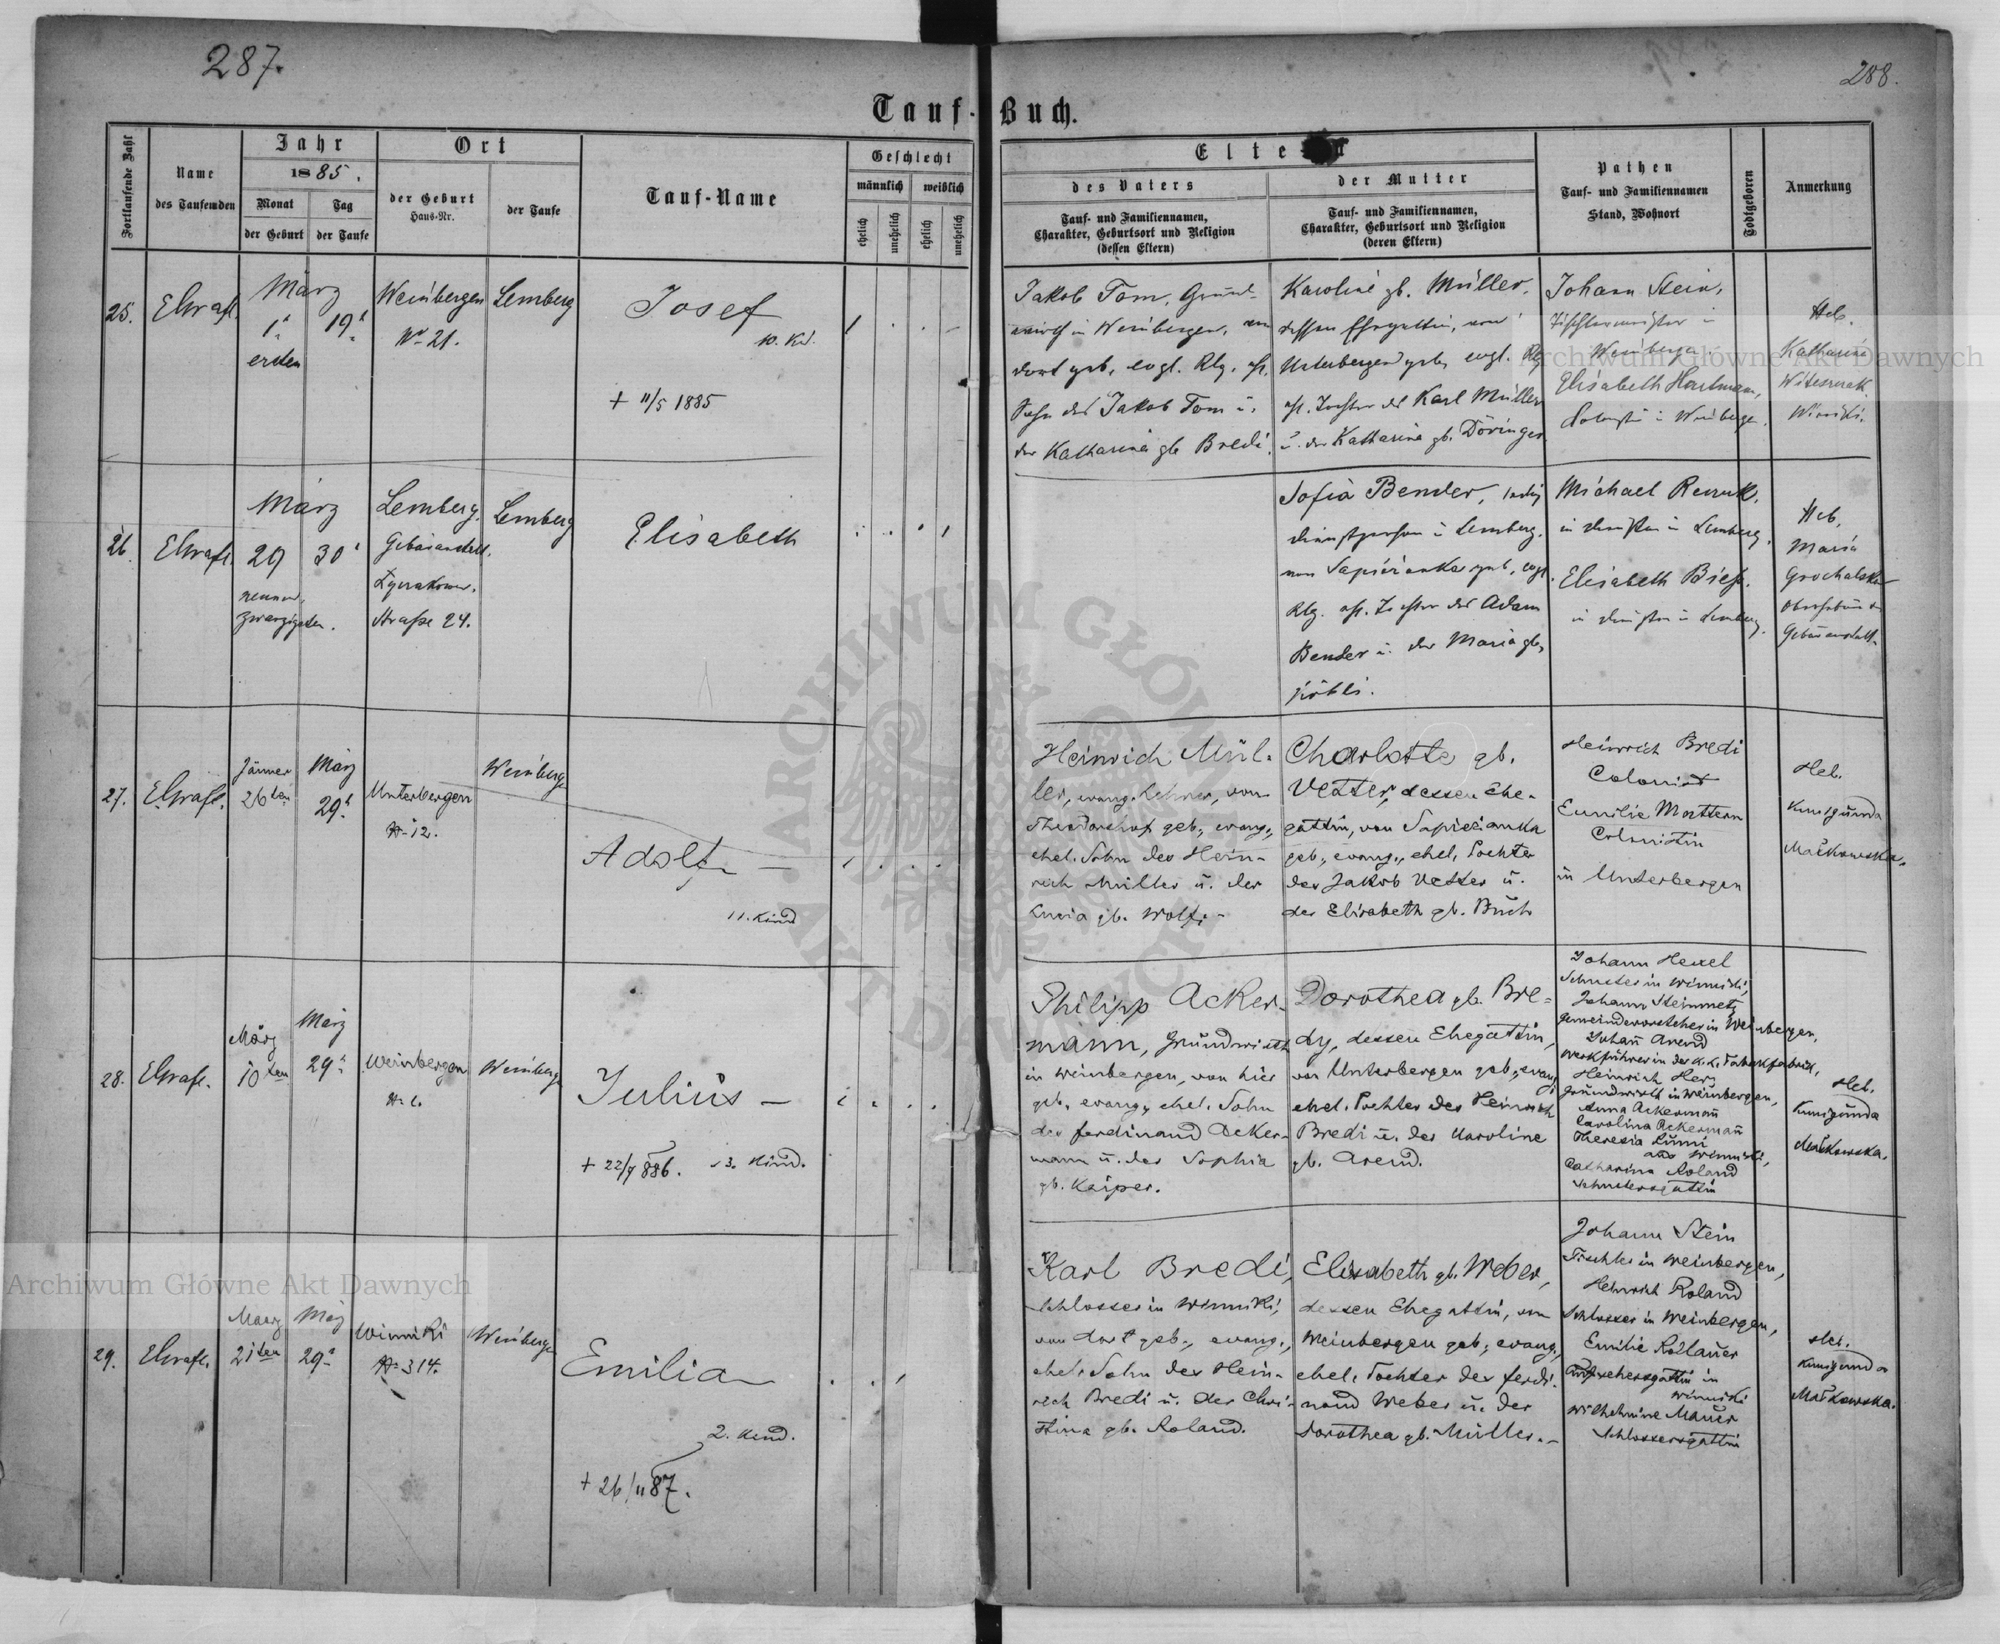 287.
288.
Tauf-Buch.
Fortlaufende Zahl
Name
des Taufenden
Jahr
1885.
Monat
Tag
der Geburt
der Taufe
Ort
der Geburt
Haus-Nr.
der Taufe
Tauf-Name
Geschlecht
männlich
weiblich
ehelich
unehelich
ehelich
unehelich
Eltern
des Vaters
Tauf- und Familiennamen,
Charakter, Geburtsort und Religion
(dessen Eltern)
der Mutter
Tauf- und Familiennamen,
Charakter, Geburtsort und Religion
(deren Eltern)
Pathen
Tauf- und Familiennamen
Stand, Wohnort
Todtgeboren
Anmerkung
25.
März
19
erden
Weinbergen
Nr 21.
Lemberg
Josef
10. Kd.
+ 11/5 1885
Jakob Tom, Grund-
wirth in Weinbergen, von
dort geb., evgl. Rlg., ehl.
Sohn des Jakob Tom u.
der Katharina gb Bredi.
Karoline gb. Müller,
dessen Ehegattin, von
Unterbergen geb, evgl. Rlg
ehl. Tochter des Karl Müller
u. der Katharina gb. Döringer
Johann Stein,
Tischlermeister in
Weinbergen
Elisabeth Hartmann,
in Weinbergen.
Heb.
Katharina
Winniki.
26.
März
29
30
neunund
zwanzigsten.
Lemberg.
Gebäranstalt.
Straße 24.
Lemberg
Elisabeth
Sofia Bender, ledig
Dienstperson in Lemberg,
von Sapieżanka geb, evgl.
Rlg. ehl. Tochter des Adam
Bender u. der Maria gb,
Michael
in Diensten in Lemberg.
Elisabeth
in Diensten in Lemberg.
Heb,
Maria
Grochalska
Oberhebamme
Gebäranstalt.
27.
Jänner
26ten
März
29
Unterbergen
N-12.
Weinberge
Adolf —
11. Kind
Heinrich Mül-
ler, evang. Lehrer, von
Theodorshof geb., evang.,
ehel. Sohn des Hein-
rich Müller u. der
gb. Wolf,-
Charlotte gb.
Vetter, dessen Ehe-
gattin, von Sapiezanka
geb., evang., ehel. Tochter
des Jakob Vetter u.
der Elisabeth gb. Buch
Heinrich Bredi
Colonist
Emilie Mattern
Colonistin
in Unterbergen
Heb.
Kunigunda
Mačkowska.
28.
März
10ten
März
29
Weinbergen
Weinberge
Julius —
+ 22/7 886.
3. Kind.
Philipp Acker-
mann, Grundwirth
in Weinbergen, von hier
geb., evang., ehel. Sohn
des Ferdinand Acker-
mann u. der Sophia
gb. Kaiper.
Dorothea gb. Bre-
dy, dessen Ehegattin,
von Unterbergen geb., evang
ehel. Tochter des Heinrich
Bredi u. der Karoline
gb. Arend.
Johann Hexel
Schuster in Winniki,
Johann Steinmetz
Gemeindevorsteher in Weinbergen,
Johann Arend
Werkführer in der k.k. Tabakfabrik,
Heinrich Herz
Grundwirth in Weinbergen,
Anna Ackermann
Carolina Ackermann
Theresia
aus Winniki,
Catharina Roland
Schustersgattin
Heb.
Kunigunda
Mačkowska.
29.
März
21ten
März
29
Winniki
N-314.
Weinberge
Emilia
2. Kind.
+ 26/11 87.
Karl Bredi,
Schlosser in Winniki,
von dort geb., evang.,
ehel. Sohn des Hein-
rich Bredi u. der Chri-
stina gb. Roland.
Elisabeth gb. Weber,
dessen Ehegattin, von
Weinbergen geb., evang.,
ehel. Tochter des Ferdi-
nand Weber u. der
Dorothea gb. Müller.-
Johann Stein
Tischler in Weinbergen,
Heinrich Roland
Schlosser in Weinbergen,
Emilie Rollauer
Aufsehersgattin in
Winniki
Wilhelmine Mauer
Schlossersgattin
Heb.
Kunigunda
Mačkowska.
Archiwum Główne Akt Dawnych
Archiwum Główne Akt Dawnych
ARCHIWUM GŁÓWNE AKT DAWNYCH